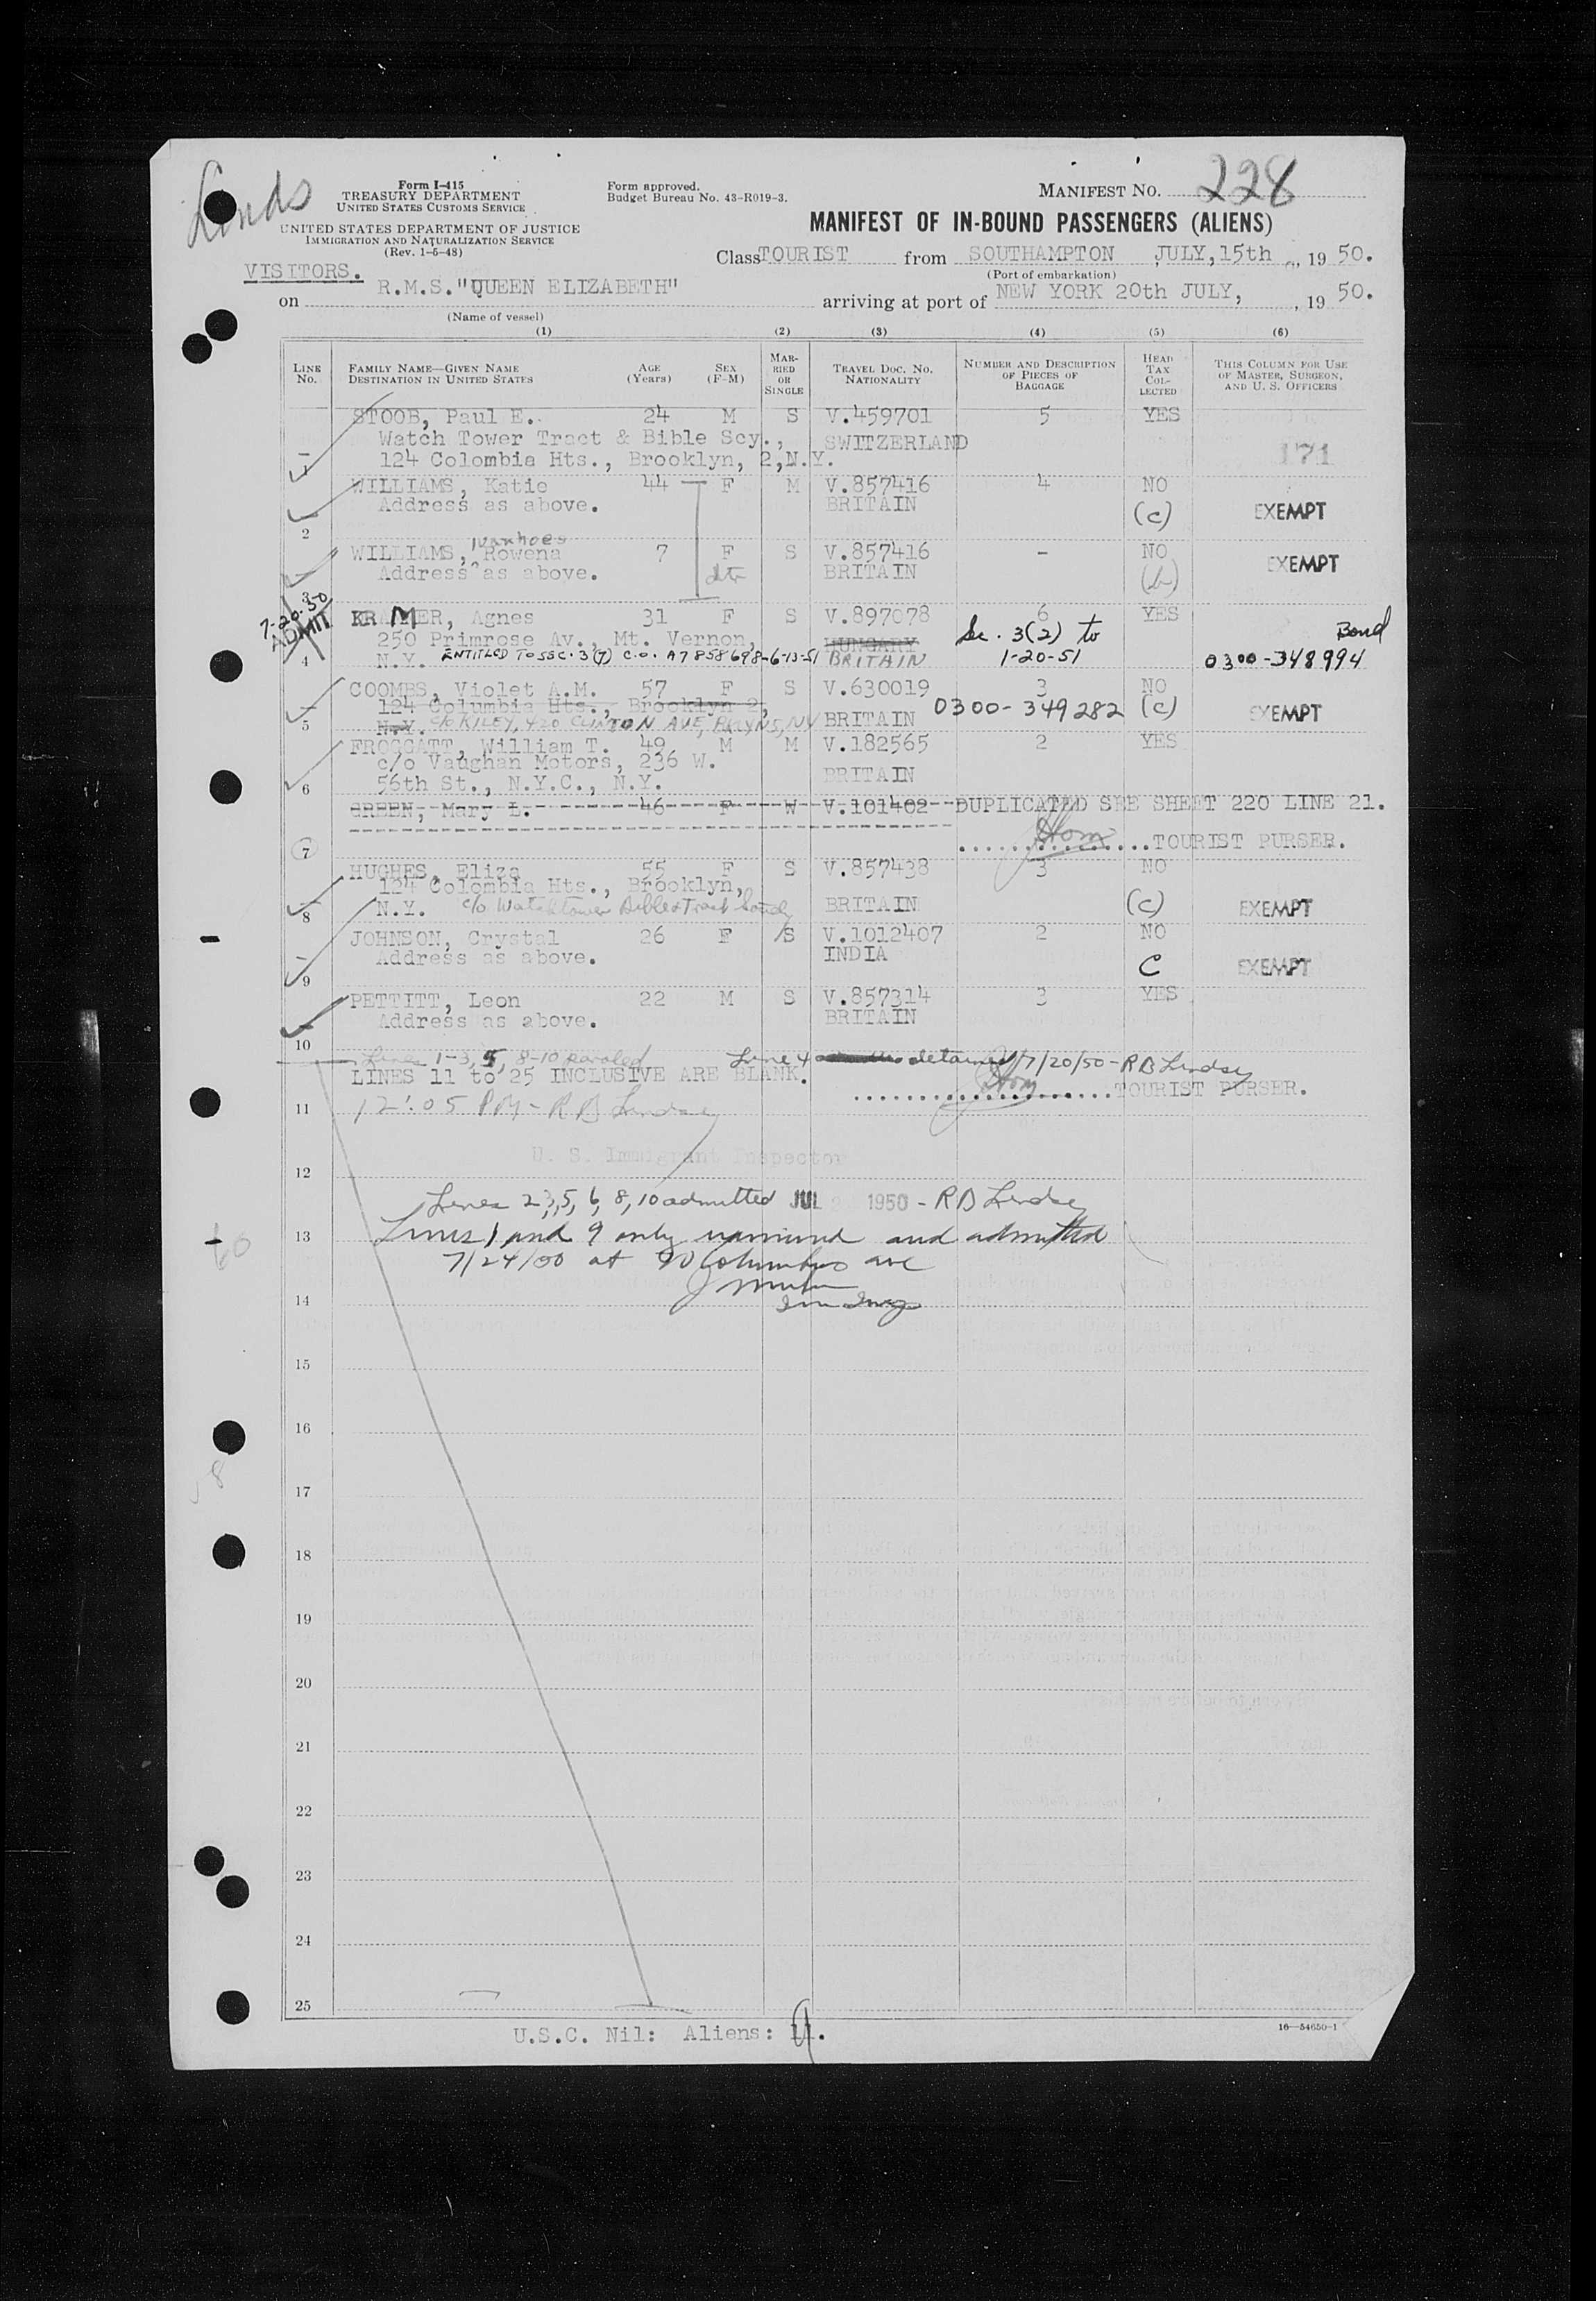 Form I-415
TREASURY DEPARTMENT
UNITED STATES CUSTOMS SERVICE
UNITED STATES DEPARTMENT OF JUSTICE
IMMIGRATION AND NATURALIZATION SERVICE
(Rev. 1-6-48)
Form approved.
Budget Bureau No. 43-R019-3.
MANIFEST NO. 228
MANIFEST OF IN-BOUND PASSENGERS (ALIENS)
Class TOURIST from SOUTHAMPTON JULY, 15th, 1950.
(Port of embarkation)
VISITORS.
on R.M.S."QUEEN ELIZABETH" arriving at port of NEW YORK 20th JULY, , 1950.
(Name of vessel)
(1) (2) (3) (4) (5) (6)
LINE No. FAMILY NAME—GIVEN NAME DESTINATION IN UNITED STATES AGE (Years) SEX (F-M) MARRIED OR SINGLE TRAVEL DOC. NO. NATIONALITY NUMBER AND DESCRIPTION OF PIECES OF BAGGAGE HEAD TAX COLLECTED THIS COLUMN FOR USE OF MASTER, SURGEON, AND U. S. OFFICERS
STOOB, Paul E. 24 M S V.459701 5 YES
Watch Tower Tract & Bible Scy., SWITZERLAND
1 124 Colombia Hts., Brooklyn, 2,N.Y. 171
WILLIAMS, Katie 44 F M V.857416 4 NO
Address as above. BRITAIN (c) EXEMPT
2
Ivanhoes
WILLIAMS, Rowena 7 F S V.857416 - NO
Address as above. dtr BRITAIN (b) EXEMPT
3
7-20-50
ADMIT
KRAMER, Agnes 31 F S V.897078 6 YES
250 Primrose Av., Mt. Vernon, HUNGARY Sec. 3(2) to Bond
4 N.Y. ENTITLED TO SSC. 3(7) C.O. A7858698-6-13-51 BRITAIN 1-20-51 0300-348994
COOMBS, Violet A.M. 57 F S V.630019 3 NO
124 Columbia Hts., Brooklyn 2,
5 N.Y. c/o KILEY, 420 CLINTON AVE, BKLYN5, NY BRITAIN 0300-349282 (c) EXEMPT
FROGGATT, William T. 49 M M V.182565 2 YES
c/o Vaughan Motors, 236 W. BRITAIN
6 56th St., N.Y.C., N.Y.
GREEN, Mary L. 46 F W V.101402 DUPLICATED SEE SHEET 220 LINE 21.
7 TOURIST PURSER.
HUGHES, Eliza 55 F S V.857438 3 NO
124 Colombia Hts., Brooklyn,
8 N.Y. c/o Watchtower Bible & Tract Society BRITAIN (c) EXEMPT
JOHNSON, Crystal 26 F S V.1012407 2 NO
Address as above. INDIA
9 C EXEMPT
PETTITT, Leon 22 M S V.857314 3 YES
Address as above. BRITAIN
10
Lines 1-3, 5, 8-10 paroled Line 4 detained 7/20/50 - RB Lindsey
LINES 11 to 25 INCLUSIVE ARE BLANK.
TOURIST PURSER.
11 12:05 PM - RB Lindsey
U. S. Immigrant Inspector
12
Lines 2,3,5,6,8,10 admitted JUL 1950 - RB Lindsey
13 Lines 1 and 9 only examined and admitted
7/24/50 at 90 Columbus ave
14
15
16
17
18
19
20
21
22
23
24
25
U.S.C. Nil: Aliens: 11. 9
16—54650-1